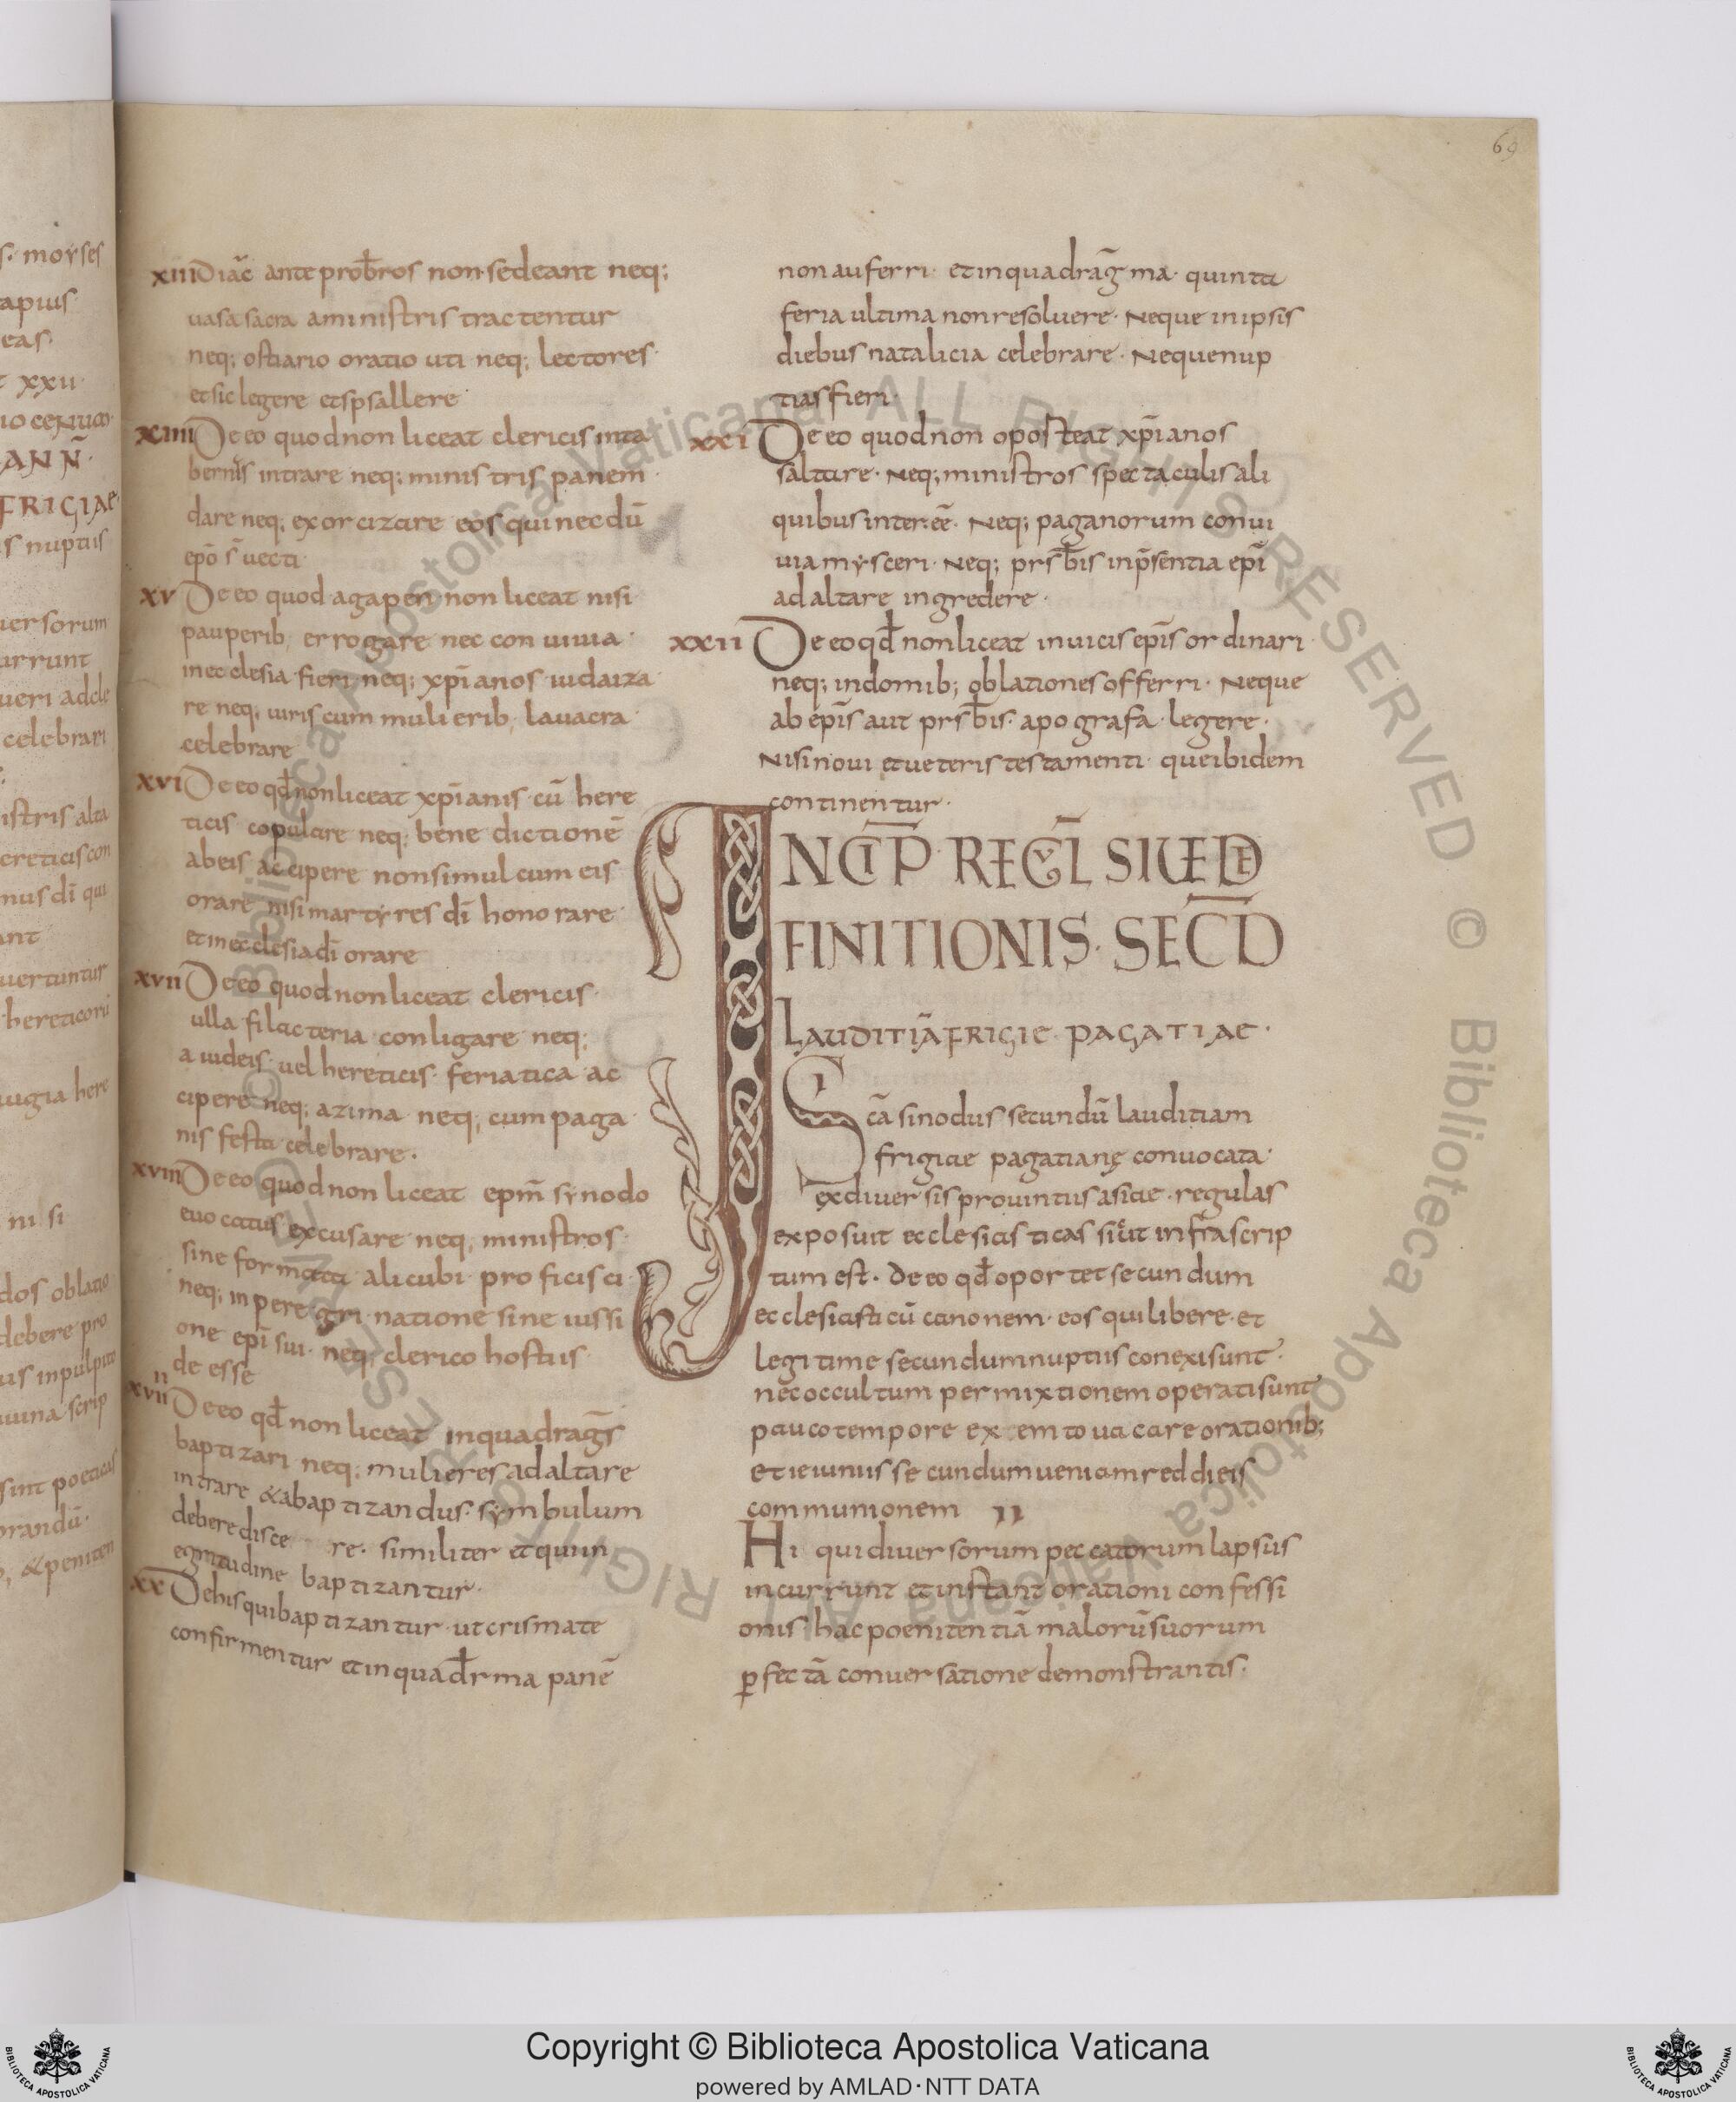 69
s. moyses
apius
eas.
t xxii
io cenuar
ANÑ.
FRIGIAe
s nuptiis
uersorum
urrunt
ueri adcle
celebrari
istris alta
creticis con
mus dī qui
ant
uertuntur
hereticorū
iugia here
ni si
dos oblatio
debere pro
us inpulpito
iuina scrip
sint poeticas
orandū.
, &peniten
xiii Diac̄ ante prob̄ros non sedeant neq;
uasa sacra aministris tractentur
neq; ostiario oratio uti neq; lectores.
et sic legere et spsallere
xiiii De eo quod non liceat clericis inta
bernis intrare neq; ministris panem
dare neq; exorcizare eos qui nec dū
ep̄o s̄ uecti.
xv De eo quod agapen non liceat nisi
pauperib; errogare nec conuiuia.
inecclesia fieri neq; xp̄ianos iudaiza
re neq; uiris cum mulierib; lauacra
celebrare
xvi De eo qd̄ non liceat xp̄ianis cū here
ticis copulare neq; benedictionē
abeis accipere non simul cum eis
orare nisi martyres dī honorare
et in ecclesia dī orare
xvii De eo quod non liceat clericis
ulla filacteria conligare neq;
a iudeis uel hereticis feriatica ac
cipere neq; azima neq; cum paga
nis festa celebrare.
xviii De eo quod non liceat epm̄ synodo
euocatus excusare neq; ministros
sine formata alicubi proficisci
neq; in peregri natione sine iussi
one epī sui. neq; clerico hostiis
de esse
xvii ii De eo qd̄ non liceat inquadrag̅s
baptizari neq; mulieres ad altare
intrare & abaptizandus. symbulum
debere disce re. similiter et qui in
egritudine baptizantur.
xx De his qui baptizantur ut crismate
confirmentur et in quad̄rma panē
non auferri. et inquadrag̅ma. quinta
feria ultima non resoluere. Neque in ipsis
diebus natalicia celebrare. Neque nup
tias fieri.
xxi De eo quod non oposteat xp̄ianos
saltare. Neq; ministros spectaculis ali
quibus inter:eē. Neq; paganorum conui
uia mysceri. Neq; prsb̄is inp̄sentia epī
ad altare ingredere.
xxii De eo qd̄ non liceat inuicis ep̄is ordinari.
neq; indomib; oblationes offerri. Neque
ab ep̄is aut prsb̄is. apografa legere.
Nisi noui et ueteris testamenti que ibidem
continentur.
INCIP̄ REGVL̄ SIUE DE
FINITIONIS. SEC̄D
LAUDITIĀ FRIGIE PAGATIAE.
Sc̄a sinodus secundū lauditiam
frigiae pagatianę conuocata.
ex diuersis prouintiis asiae. regulas
exposuit ecclesiasticas sicut infrascrip
tum est. De eo qd̄ oportet secundum
ecclesiasticū canonem. eos qui libere et
legitime secundum nuptiis conexi sunt.
nec occultum permixtionem operati sunt
pauco tempore ex em to uacare orationib;
et ieiuniis secundum ueniam reddi eis
communionem ii
Hi qui diuersorum peccatorum lapsus
incurrunt et instant orationi confessi
onis hac poenitentiā malorū suorum
ꝑfectā conuersatione demonstrantis.
Copyright © Biblioteca Apostolica Vaticana
powered by AMLAD·NTT DATA
BIBLIOTECA APOSTOLICA VATICANA
BIBLIOTECA APOSTOLICA VATICANA
© Biblioteca Apostolica Vaticana ALL RIGHTS RESERVED © Biblioteca Apostolica Vaticana ALL RIGHTS RESERVED